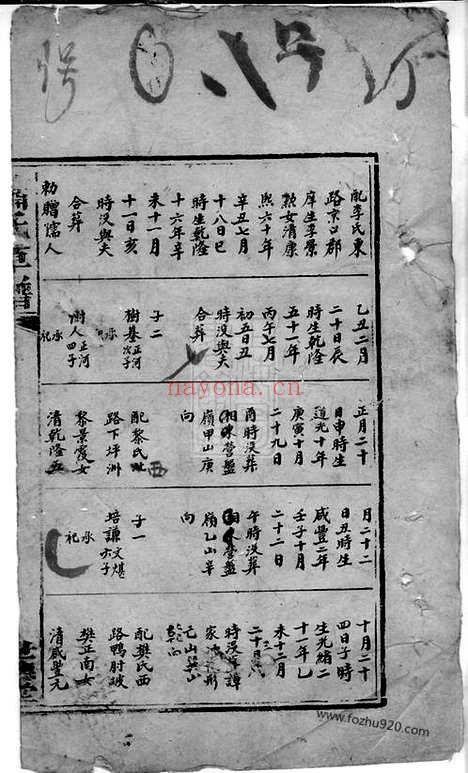 配李氏東
路京口郡
庠生李景
勲女清康
熙六十年
辛丑七月
十八日巳
時生乾隆
十六年辛
未十一月
十一日亥
時没與夫
合葬
勅贈孺人
乙丑二月
二十日辰
時生乾隆
五十一年
丙午七月
初五日丑
時没與夫
合葬
子二
樹基 正河次子
承
樹人 正河四子
承祀
正月二十
日申時生
道光十年
庚寅十月
二十九日
酉時没葬
嶺甲山庚
向
配黎氏西
路下坪洲
黎景霞女
清乾隆五
月二十二
日丑時生
咸豐二年
壬子十月
二十二日
午時没葬
嶺乙山辛
向
子一
培謙 文堪六子
承祀
十月二十
四日子時
生光緒二
十一年乙
未十二月
二十日
時没
家 形
乙山
配樊氏西
路鴨肘坡
樊正南女
清咸豐元
nayona.cn
www.fozhu920.com